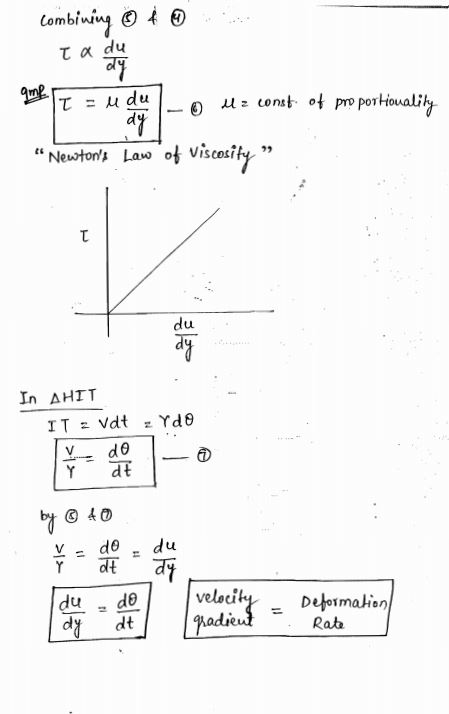 Combining ⑤ & ④
τ α du/dy
Imp τ = μ du/dy — ⑥ μ = const. of proportionality
"Newton's Law of Viscosity"
τ
du/dy
In ΔHIT
IT = Vdt = Ydθ
V/Y = dθ/dt — ⑦
by ⑤ & ⑦
V/Y = dθ/dt = du/dy
du/dy = dθ/dt
velocity gradient = Deformation Rate